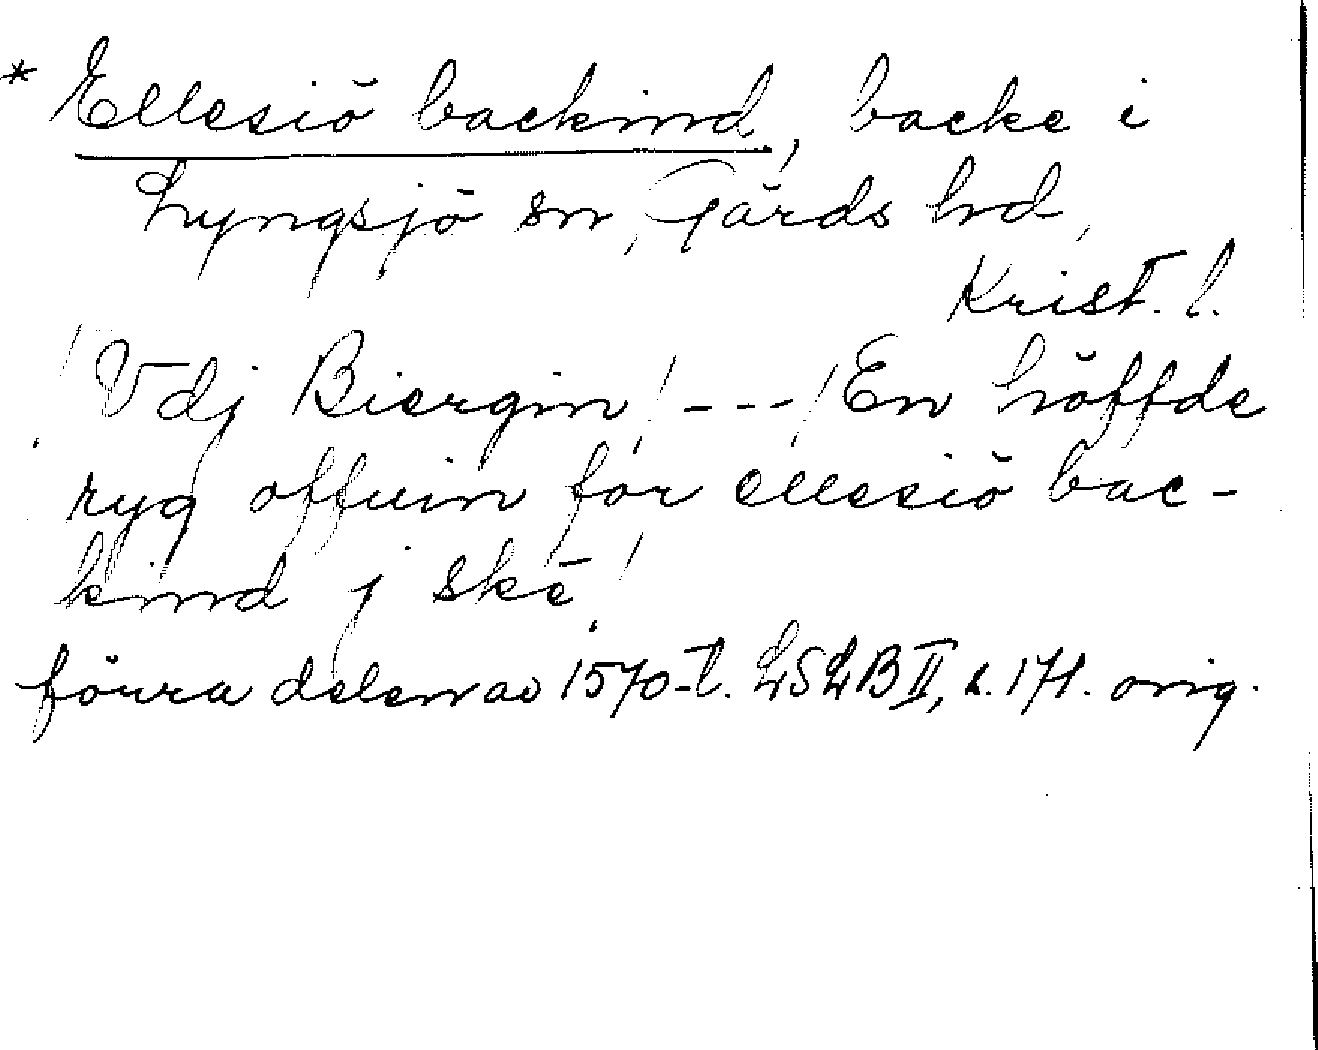 * Ellesiö backind, backe i
Lyngsjö sn, Gärds hd,
Krist. l.
/Vdj Biergin/---/En höffde
ryg offuin for ellesiö bac-
kind j skē/
förra delen av 1570-t. LSLB II, s. 171. orig.